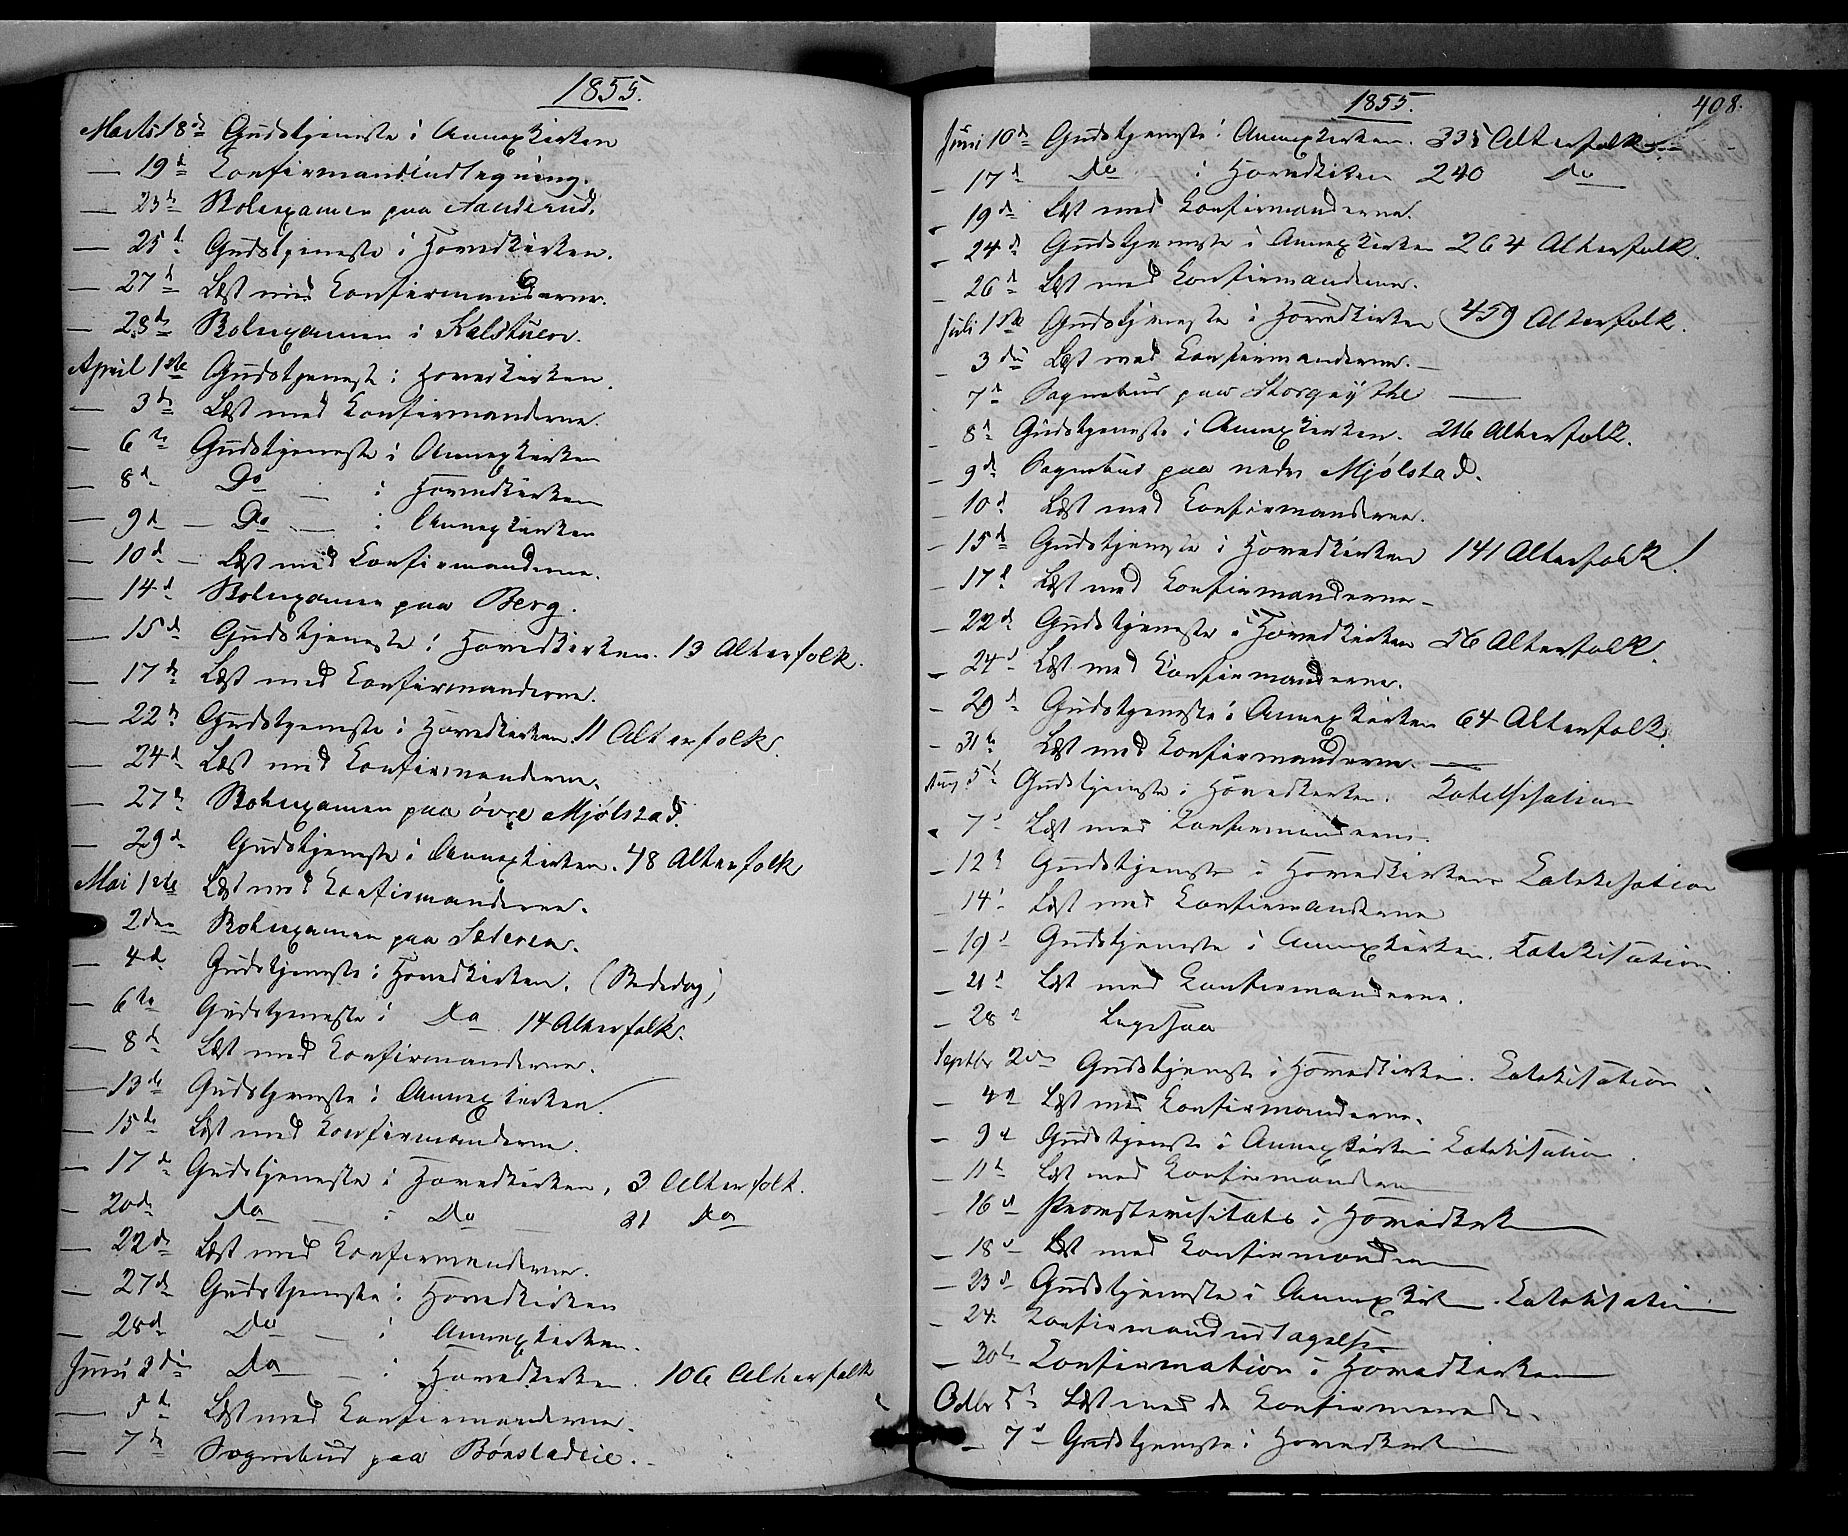 1855.
Marts 18de Gudstjeneste i Annexkirken
— 19d Konfirmandindtegning.
— 23de Skoleexamen paa Aanderud.
— 25d Gudstjeneste i Hovedkirken.
— 27d Læst med Konfirmanderne.
— 28de Skoleexamen i Kalstuen.
April 1ste Gudstjeneste i Hovedkirken.
— 3de Læst med Konfirmanderne.
— 6te Gudstjeneste i Annexkirken
— 8d Do — i Hovedkirken
— 9d — Do — i Annexkirken
— 10d — Læst med Konfirmanderne.
— 14d Skoleexamen paa Berg.
— 15de Gudstjeneste i Hovedkirken. 13 Alterfolk.
— 17de Læst med Konfirmanderne.
— 22de Gudstjeneste i Hovedkirken 11 Alterfolk.
— 24d Læst med Konfirmanderne.
— 27de Skoleexamen paa övre Mjölstad.
— 29d Gudstjeneste i Annexkirken. 48 Alterfolk
Mai 1ste Læst med Konfirmanderne.
— 2den Skoleexamen paa
— 4d Gudstjeneste i Hovedkirken. (Bededag)
— 6te Gudstjeneste i Do 14 Alterfolk.
— 8d Læst med Konfirmanderne.
— 13de Gudstjeneste i Annexkirken.
— 15de Læst med Konfirmanderne.
— 17de Gudstjeneste i Hovedkirken, 3 Alterfolk.
— 20de Do — i Do — 31 Do
— 22de Læst med Konfirmanderne.
— 27de Gudstjeneste i Hovedkirken
— 28d Do — i Annexkirken.
Juni 3die Do — i Hovedkirken. 106 Alterfolk
— 5te Læst med Konfirmanderne.
— 7de Sognebud paa
1855. 408.
Juni 10de Gudstjeneste i Annexkirken. 335 Alterfolk.
— 17d Do — i Hovedkirken 240 Do
— 19de Læst med Konfirmanderne.
— 24d Gudstjeneste i Annexkirken 264 Alterfolk.
— 26d Læst med Konfirmanderne.
Juli 1ste Gudstjeneste i Hovedkirken 459 Alterfolk.
— 3die Læst med Konfirmanderne. —
— 7d Sognebud paa —
— 8d Gudstjeneste i Annexkirken. 216 Alterfolk.
— 9d Sognebud paa nedre Mjölstad.
— 10d Læst med Konfirmanderne.
— 15de Gudstjeneste i Hovedkirken 141 Alterfolk.
— 17d Læst med Konfirmanderne —
— 22de Gudstjeneste i Hovedkirken 56 Alterfolk.
— 24d Læst med Konfirmanderne.
— 29d Gudstjeneste i Annexkirken 64 Alterfolk.
— 31te Læst med Konfirmanderne. —
Aug 5t Gudstjeneste i Hovedkirken. Katekisation
— 7d Læst med Konfirmanderne
— 12d Gudstjeneste i Hovedkirken Katekisation
— 14d Læst med Konfirmanderne
— 19d Gudstjeneste i Annexkirken. Katekisation.
— 21d Læst med Konfirmanderne.
— 28d Ligesaa
Septbr 2den Gudstjeneste i Hovedkirken. Katekisation
— 4d Læst med Konfirmanderne.
— 9d Gudstjeneste i Annexkirken Katekisation.
— 11te Læst med Konfirmanderne
— 16d Provstevisitats i Hovedkirken
— 18d Læst med Konfirmanderne
— 23d Gudstjeneste i Annexkirken. Katekisation
— 24. Konfirmandudtagelse
— 30te Konfirmation i Hovedkirken
Octbr 5t Læst med de Konfirmerede.
— 7d Gudstjeneste i Hovedkirken